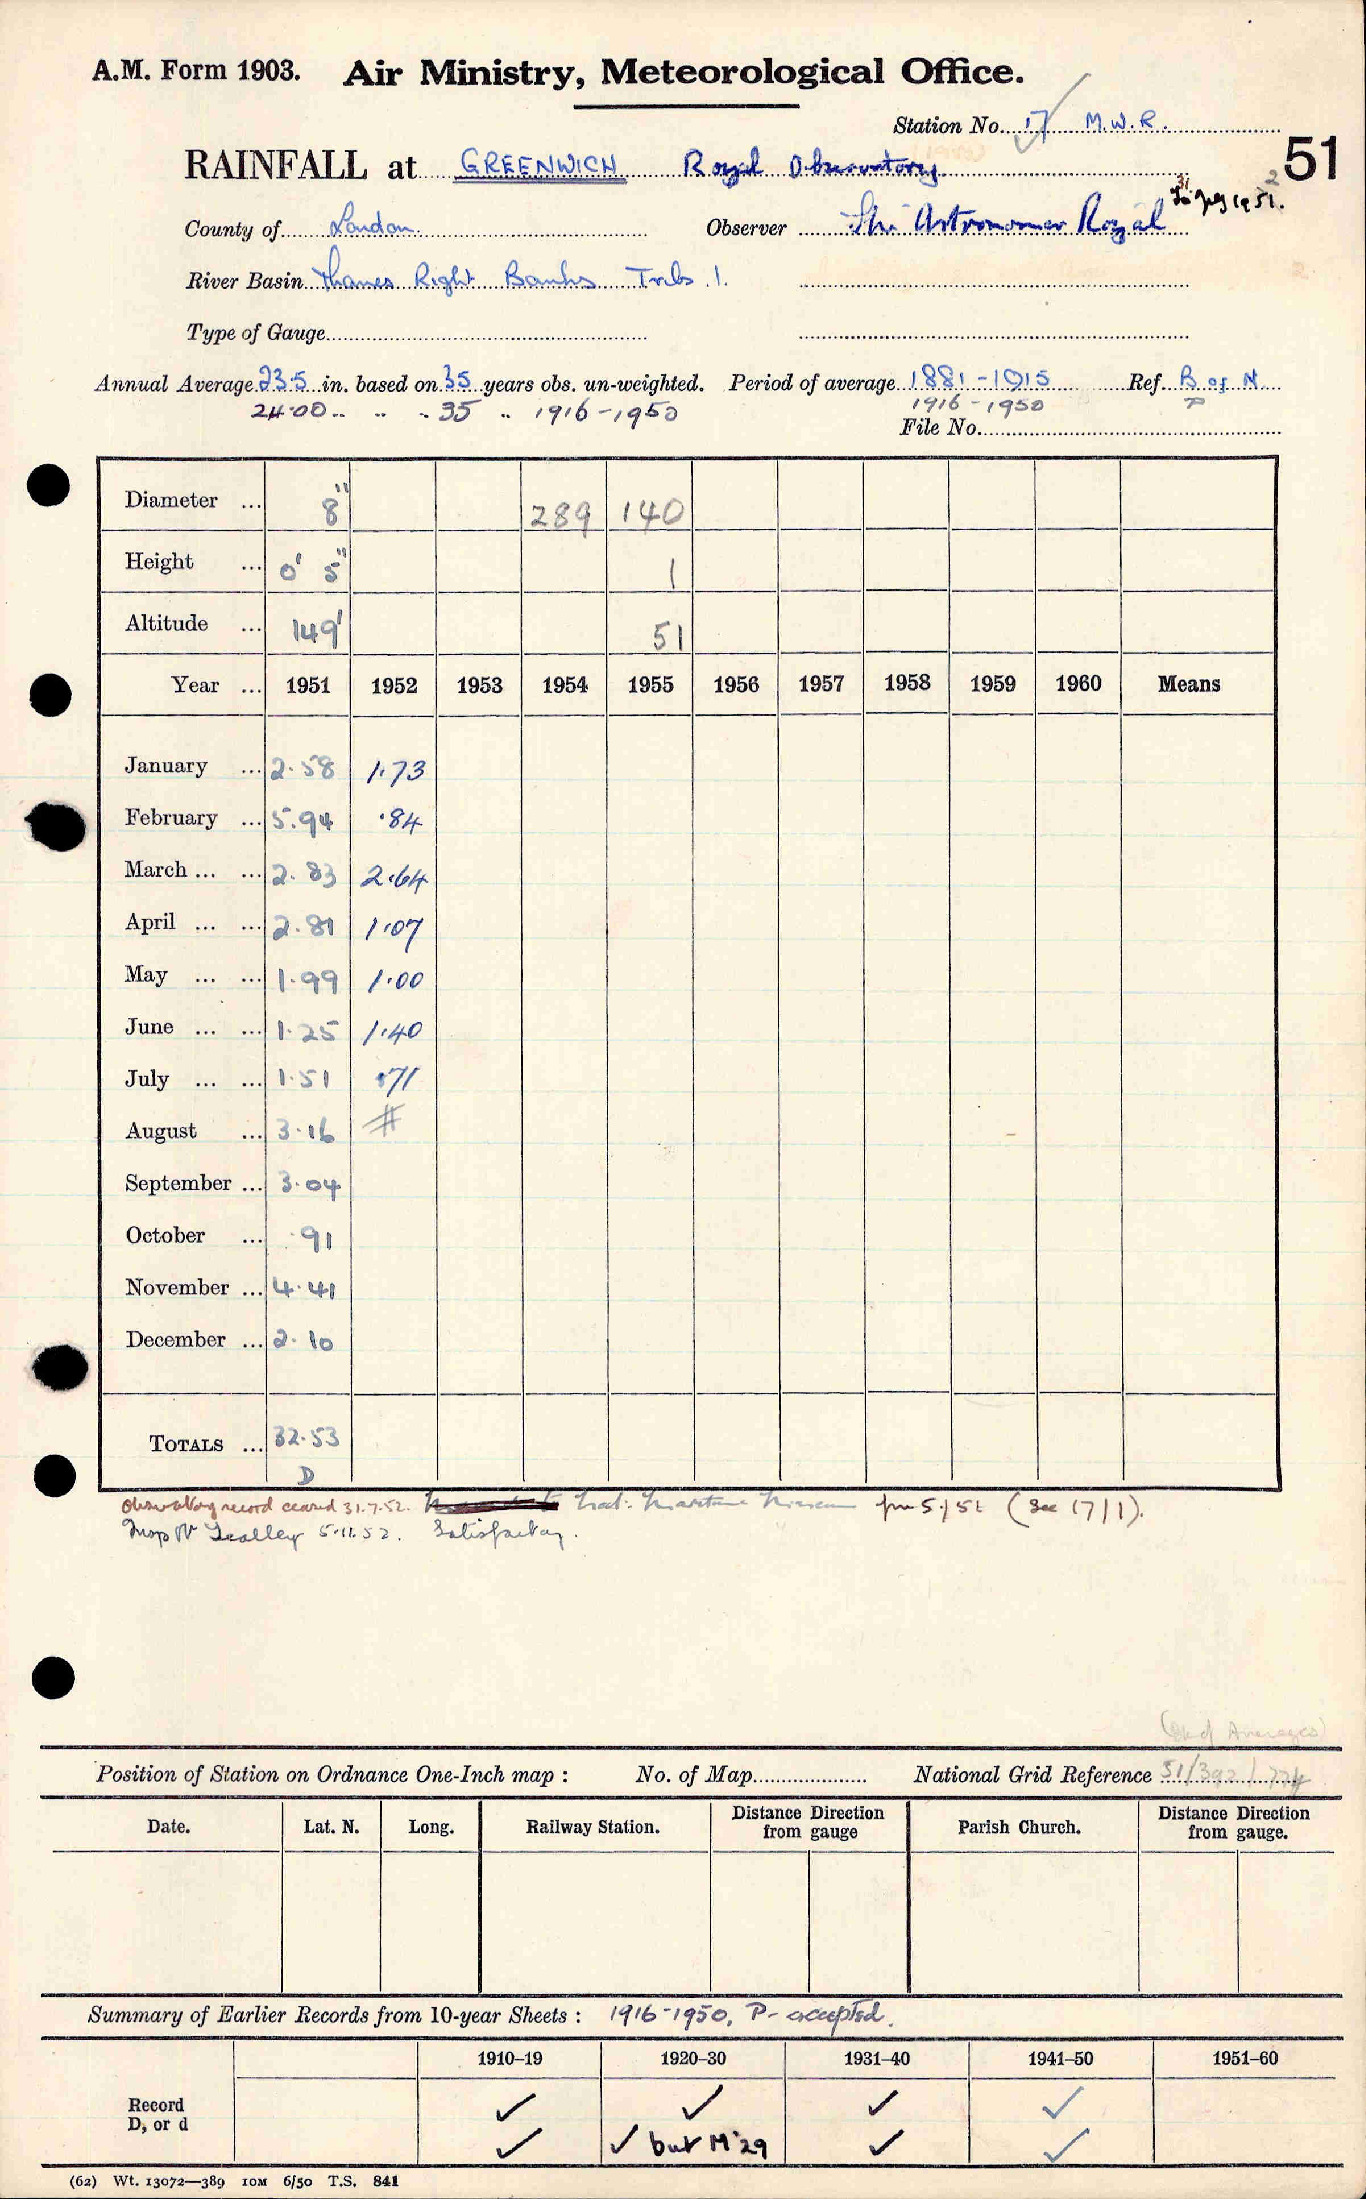 A.M. Form 1903. Air Ministry, Meteorological Office.
Station No. 17 M.W.R.
51
RAINFALL at GREENWICH Royal Observatory
County of London Observer The Astronomer Royal
River Basin Thames Right Banks Tribs 1.
Type of Gauge
Annual Average 23.5 in. based on 35 years obs. un-weighted. Period of average 1881-1915 Ref. B of N
24.00 " " " 35 " 1916-1950 1916-1950 P
File No.
Diameter ... 8" 289 140
Height ... 0' 5" 1
Altitude ... 149' 51
Year ... 1951 1952 1953 1954 1955 1956 1957 1958 1959 1960 Means
January ... 2.58 1.73
February ... 5.94 .84
March ... ... 2.83 2.64
April ... ... 2.81 1.07
May ... ... 1.99 1.00
June ... ... 1.25 1.40
July ... ... 1.51 .71
August ... 3.16 #
September ... 3.04
October ... .91
November ... 4.41
December ... 2.10
TOTALS ... 32.53
D
Observatory record ceased 31.7.52. Nat. Maritime Museum from 5/52 (See 17/1).
5.11.52. Satisfactory.
(Std Averages)
Position of Station on Ordnance One-Inch map : No. of Map National Grid Reference 51/392/774
Date. Lat. N. Long. Railway Station. Distance Direction from gauge Parish Church. Distance Direction from gauge.
Summary of Earlier Records from 10-year Sheets : 1916-1950, P- accepted.
1910–19 1920–30 1931–40 1941–50 1951–60
Record ✓ ✓ ✓ ✓
D, or d ✓ ✓ but M'29 ✓ ✓
(62) Wt. 13072—389 10M 6/50 T.S. 841